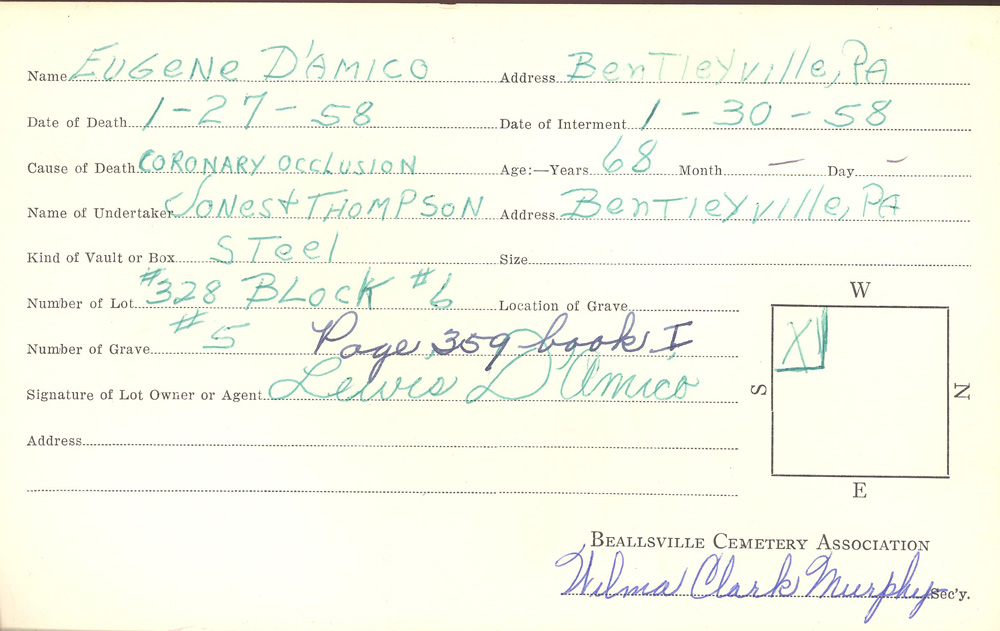 Name EUGENE D'AMICO Address BenTleyville, PA
Date of Death 1-27-58 Date of Interment 1-30-58
Cause of Death CORONARY OCCLUSION Age:—Years 68 Month — Day –
Name of Undertaker Jones & THOMPSON Address BenTleyville, PA
Kind of Vault or Box STeel Size
Number of Lot #328 BLOCK #6 Location of Grave
Number of Grave #5 Page 359 book I
Signature of Lot Owner or Agent Lewis D'Amico
Address
W
X
S
N
E
BEALLSVILLE CEMETERY ASSOCIATION
Wilma Clark Murphy Sec'y.